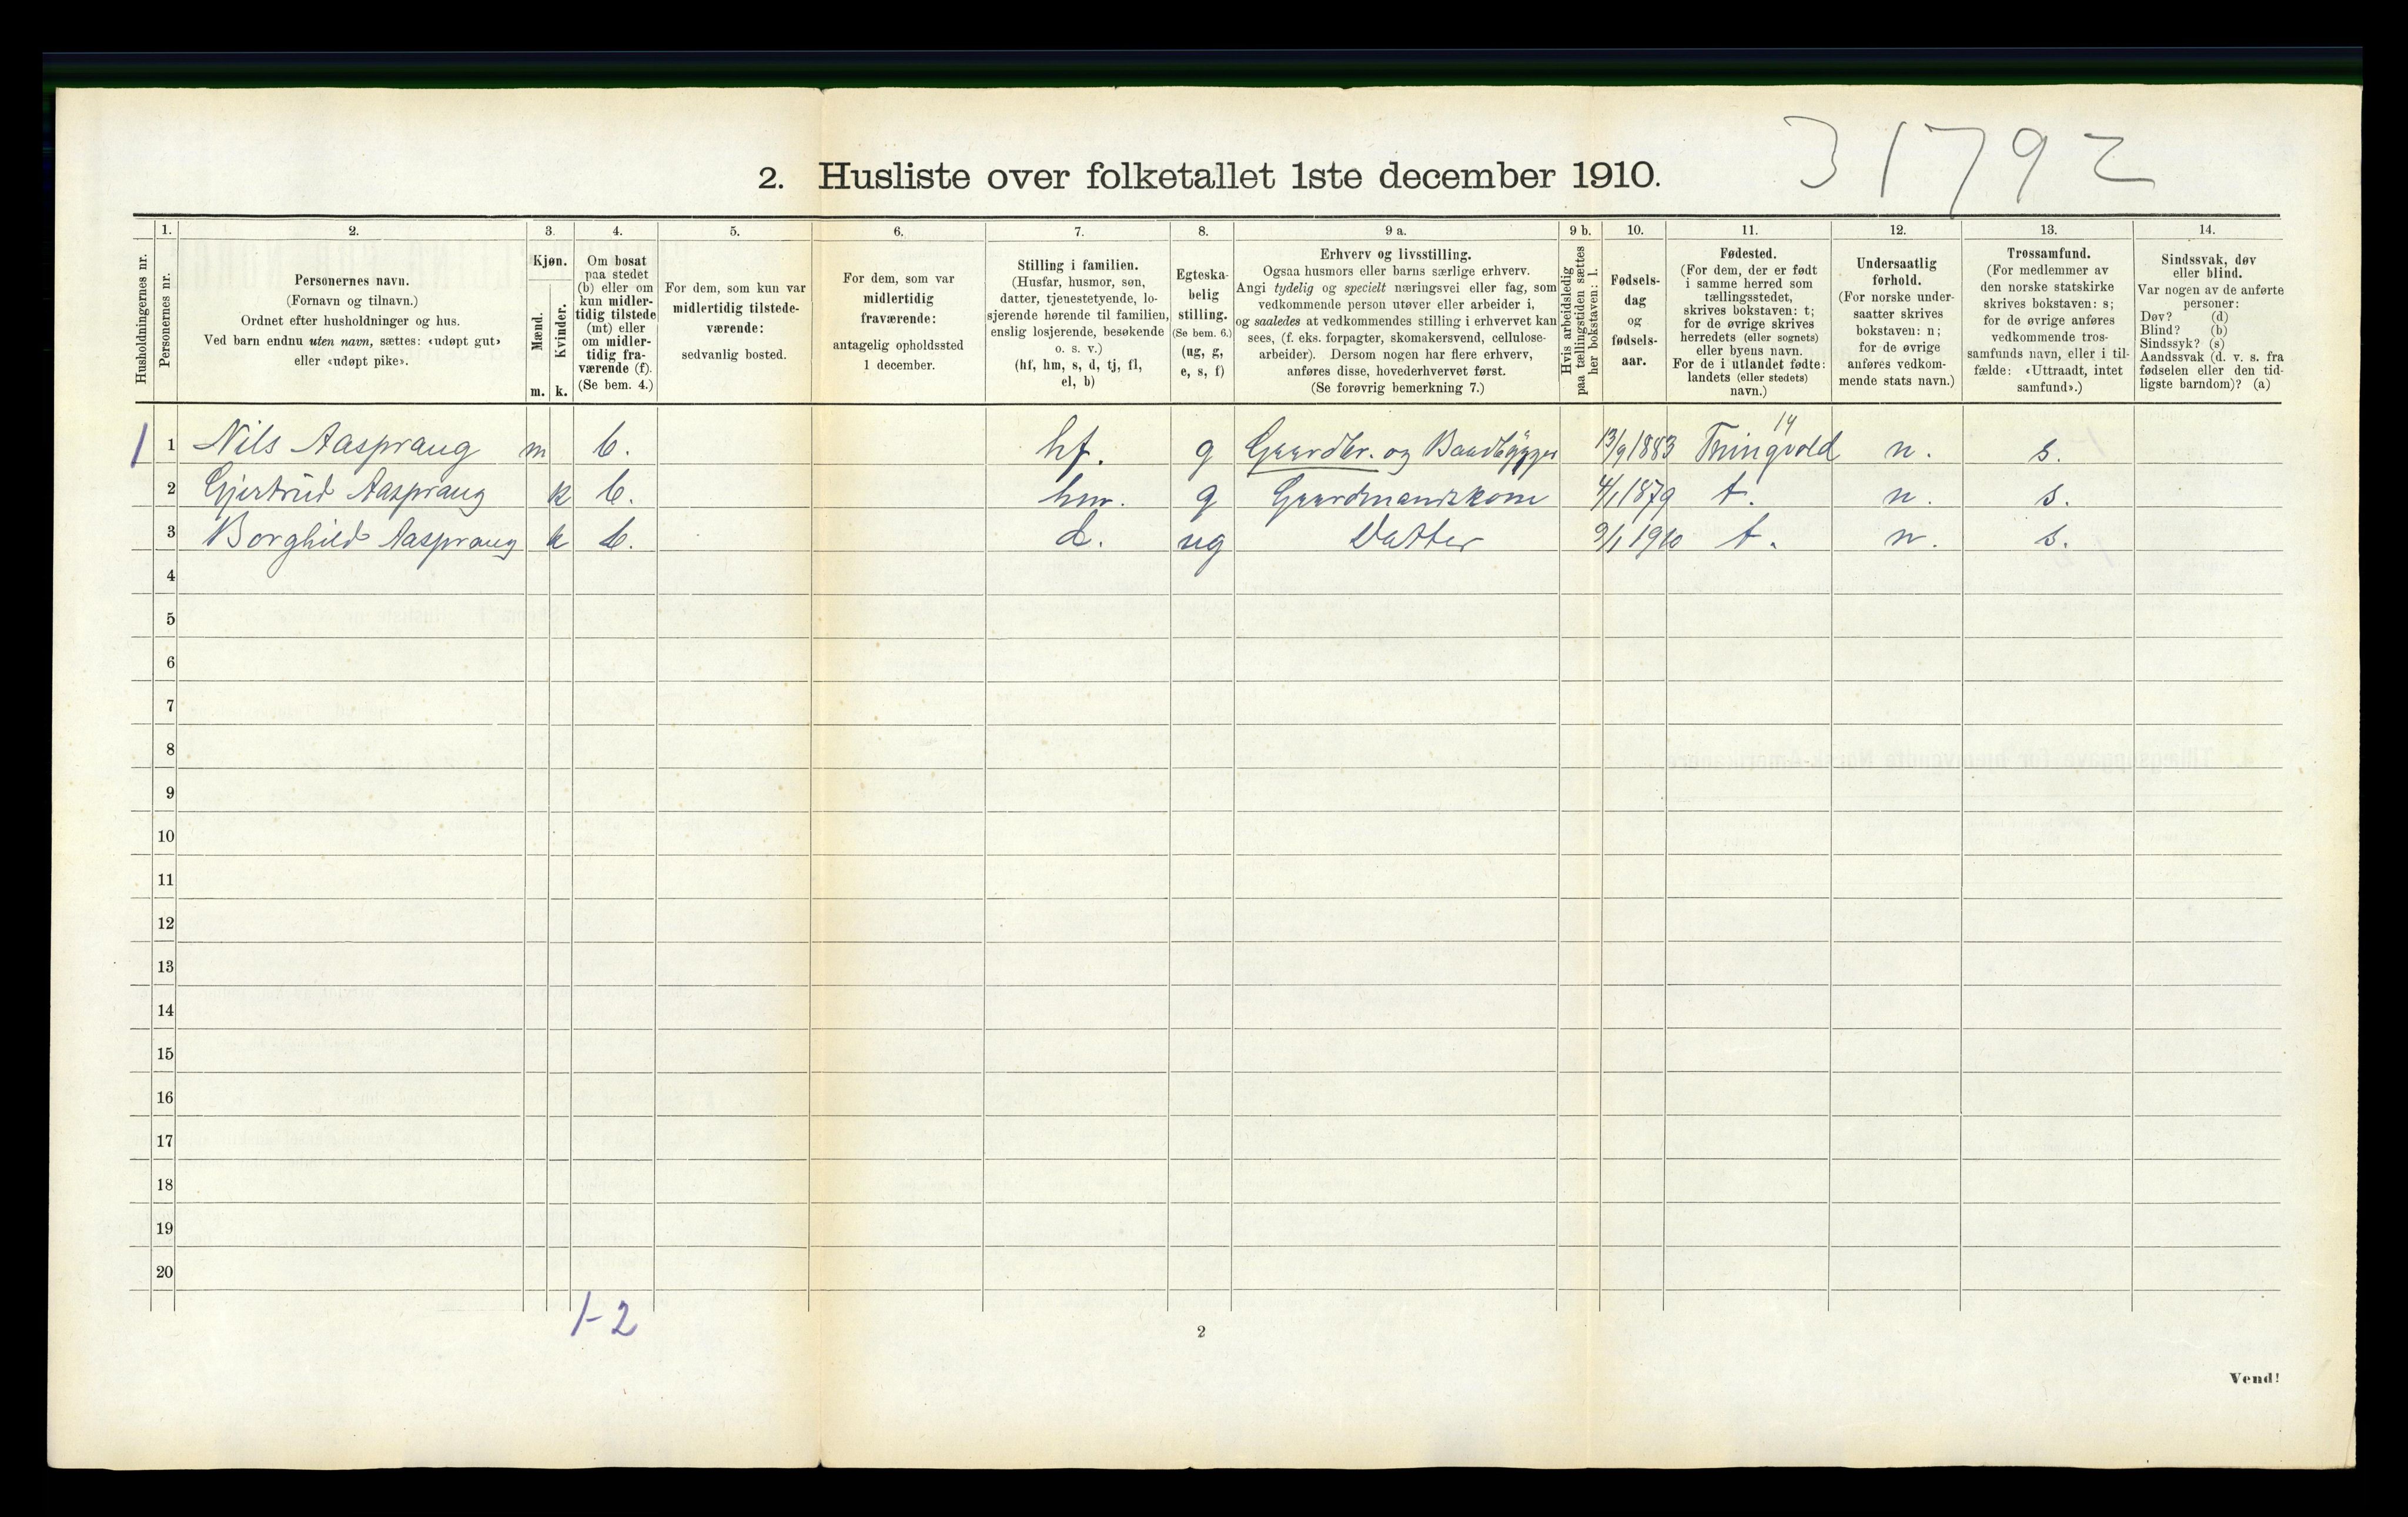 31792
2. Husliste over folketallet 1ste december 1910.
Husholdningernes nr.
1.
Personernes nr.
2.
Personernes navn.
(Fornavn og tilnavn.)
Ordnet efter husholdninger og hus.
Ved barn endnu uten navn, sættes: «udøpt gut»
eller «udøpt pike».
3.
Kjøn.
Mænd.
Kvinder.
m. k.
4.
Om bosat
paa stedet
(b) eller om
kun midler-
tidig tilstede
(mt) eller
om midler-
tidig fra-
værende (f).
(Se bem. 4.)
5.
For dem, som kun var
midlertidig tilstede-
værende:
sedvanlig bosted.
6.
For dem, som var
midlertidig
fraværende:
antagelig opholdssted
1 december.
7.
Stilling i familien.
(Husfar, husmor, søn,
datter, tjenestetyende, lo-
sjerende hørende til familien,
enslig losjerende, besøkende
o. s. v.)
(hf, hm, s, d, tj, fl,
el, b)
8.
Egteska-
belig
stilling.
(Se bem. 6.)
(ug, g,
e, s, f)
9 a.
Erhverv og livsstilling.
Ogsaa husmors eller barns særlige erhverv.
Angi tydelig og specielt næringsvei eller fag, som
vedkommende person utøver eller arbeider i,
og saaledes at vedkommendes stilling i erhvervet kan
sees, (f. eks. forpagter, skomakersvend, cellulose-
arbeider). Dersom nogen har flere erhverv,
anføres disse, hovederhvervet først.
(Se forøvrig bemerkning 7.)
9 b.
Hvis arbeidsledig
paa tællingstiden sættes
her bokstaven: l.
10.
Fødsels-
dag
og
fødsels-
aar.
11.
Fødested.
(For dem, der er født
i samme herred som
tællingsstedet,
skrives bokstaven: t;
for de øvrige skrives
herredets (eller sognets)
eller byens navn.
For de i utlandet fødte:
landets (eller stedets)
navn.)
12.
Undersaatlig
forhold.
(For norske under-
saatter skrives
bokstaven: n;
for de øvrige
anføres vedkom-
mende stats navn.)
13.
Trossamfund.
(For medlemmer av
den norske statskirke
skrives bokstaven: s;
for de øvrige anføres
vedkommende tros-
samfunds navn, eller i til-
fælde: «Uttraadt, intet
samfund».)
14.
Sindssvak, døv
eller blind.
Var nogen av de anførte
personer:
Døv? (d)
Blind? (b)
Sindssyk? (s)
Aandssvak (d. v. s. fra
fødselen eller den tid-
ligste barndom)? (a)
14
1 1 Nils Aasprang m b. hf. g Gaardbr. og Baadbygger 13/9 1883 Tningvold n. s.
2 Gjertrud Aasprang k b. hm. g Gaardmandskone 4/1 1879 t. n. s.
3 Borghild Aasprang k b. d. ug Datter 9/1 1910 t. n. s.
4
5
6
7
8
9
10
11
12
13
14
15
16
17
18
19
20
1-2
2
Vend!